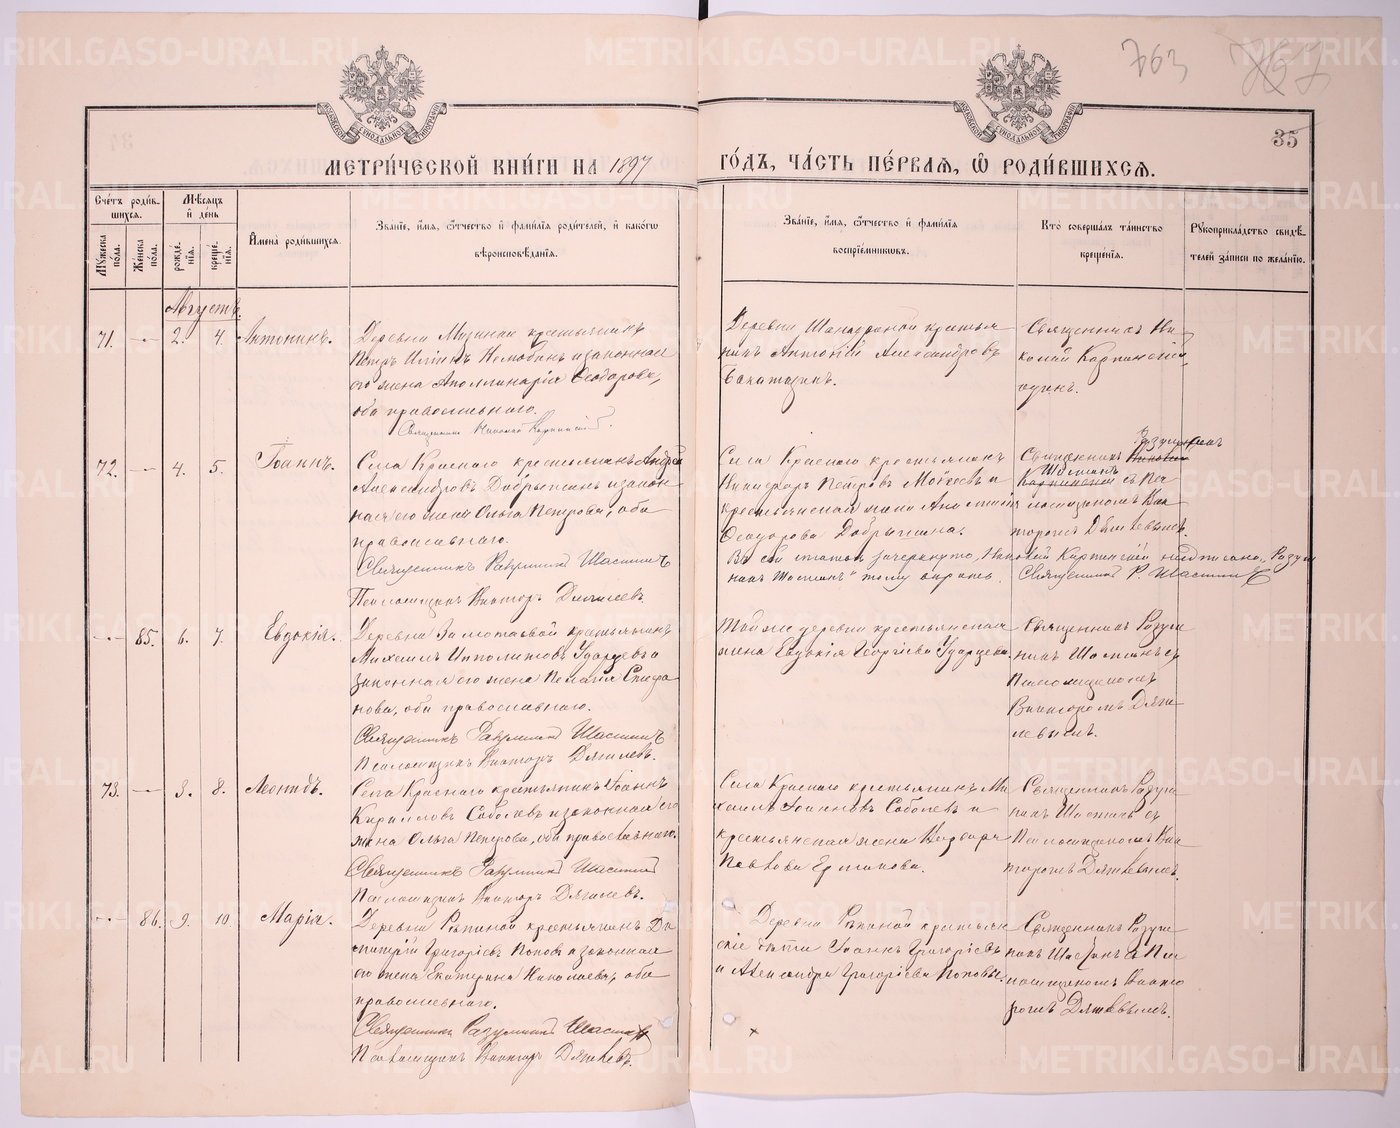 763
35
МЕТРИ́ЧЕСКОЙ КНИ́ГИ НА 1897 ГО́ДЪ, ЧА́СТЬ ПЕ́РВАЯ, Ѡ РОДИ́ВШИХСЯ.
Сче́тъ роди́вшихся.
Мѣ́сяцъ и҆ де́нь
Му́жеска по́ла.
Же́нска по́ла.
рожде́нїя.
креще́нїя.
И҆мена̀ роди́вшихся.
Зва́нїе, и҆́мя, ѻ҆́тчество и҆ фами́лїя роди́телей, и҆ како́гѡ
вѣроисповѣ́данїя.
Зва́нїе, и҆́мя, ѻ҆́тчество и҆ фами́лїя
воспрїе́мникѡвъ.
Кто̀ соверша́лъ та́инство
креще́нїя.
Рукоприкла́дство свидѣ́телей за́писи по жела́нїю.
Августъ.
71. — 2. 4. Антонинъ.
Деревни Мизиной крестьянинъ
Петръ Ильинъ Нелюбинъ и законная
его жена Аполлинарія Ѳеодорова,
оба православнаго.
Священникъ Николай Карпинскій.
крестья
нинъ Антоній Александровъ
Священникъ Ни
колай Карпинскій
одинъ.
72. — 4. 5. Іоаннъ.
Села Краснаго крестьянинъ Андрей
Александровъ Добрынинъ и закон
ная его жена Ольга Петрова, оба
православнаго.
Священникъ Разумникъ Шастинъ
Псаломщикъ Викторъ Дягилевъ.
Села Краснаго крестьянинъ
Никифоръ Петровъ и
крестьянская жена
Ѳеодорова Добрынина.
Разумникъ
Священникъ Николай
Шастинъ
Карпинскій съ Пса
ломщикомъ Вик
торомъ Дягилевымъ.
Въ сей статьѣ зачеркнуто „Николай Карпинскій“ надписано „Разум
никъ Шастинъ“ тому вѣрить. Священникъ Р. Шастинъ
— 85. 6. 7. Евдокія.
Деревни Замотаевой крестьянинъ
Михаилъ Ипполитовъ Ударцевъ и
законная его жена Пелагія Спирдо
нова, оба православнаго.
Священникъ Разумникъ Шастинъ
Псаломщикъ Викторъ Дягилевъ.
Той же деревни крестьянская
жена Евдокія Георгіева Ударцева.
Священникъ Разум
никъ Шастинъ съ
Псаломщикомъ
Викторомъ Дяги
левымъ.
73. — 3. 8. Леонидъ.
Села Краснаго крестьянинъ Іоаннъ
Кирилловъ Соболевъ и законная его
жена Ольга Петрова, оба православнаго.
Священникъ Разумникъ Шастинъ
Псаломщикъ Викторъ Дягилевъ.
Села Краснаго крестьянинъ Ми
хаилъ Іоанновъ Соболевъ и
крестьянская жена Варвара
Павлова Ермакова.
Священникъ Разум
никъ Шастинъ съ
Псаломщикомъ Вик
торомъ Дягилевымъ.
— 86. 9. 10. Марія.
Деревни Рѣпиной крестьянинъ Ди
митрій Григоріевъ Поповъ и законная
его жена Екатерина Николаева, оба
православнаго.
Священникъ Разумникъ Шастинъ
Псаломщикъ Викторъ Дягилевъ.
Деревни Рѣпиной крестьян
скіе дѣти Іоаннъ Григоріевъ
и Александра Григоріева Поповы.
Священникъ Разум
никъ Шастинъ съ Пса
ломщикомъ Викто
ромъ Дягилевымъ.
METRIKI.GASO-URAL.RU